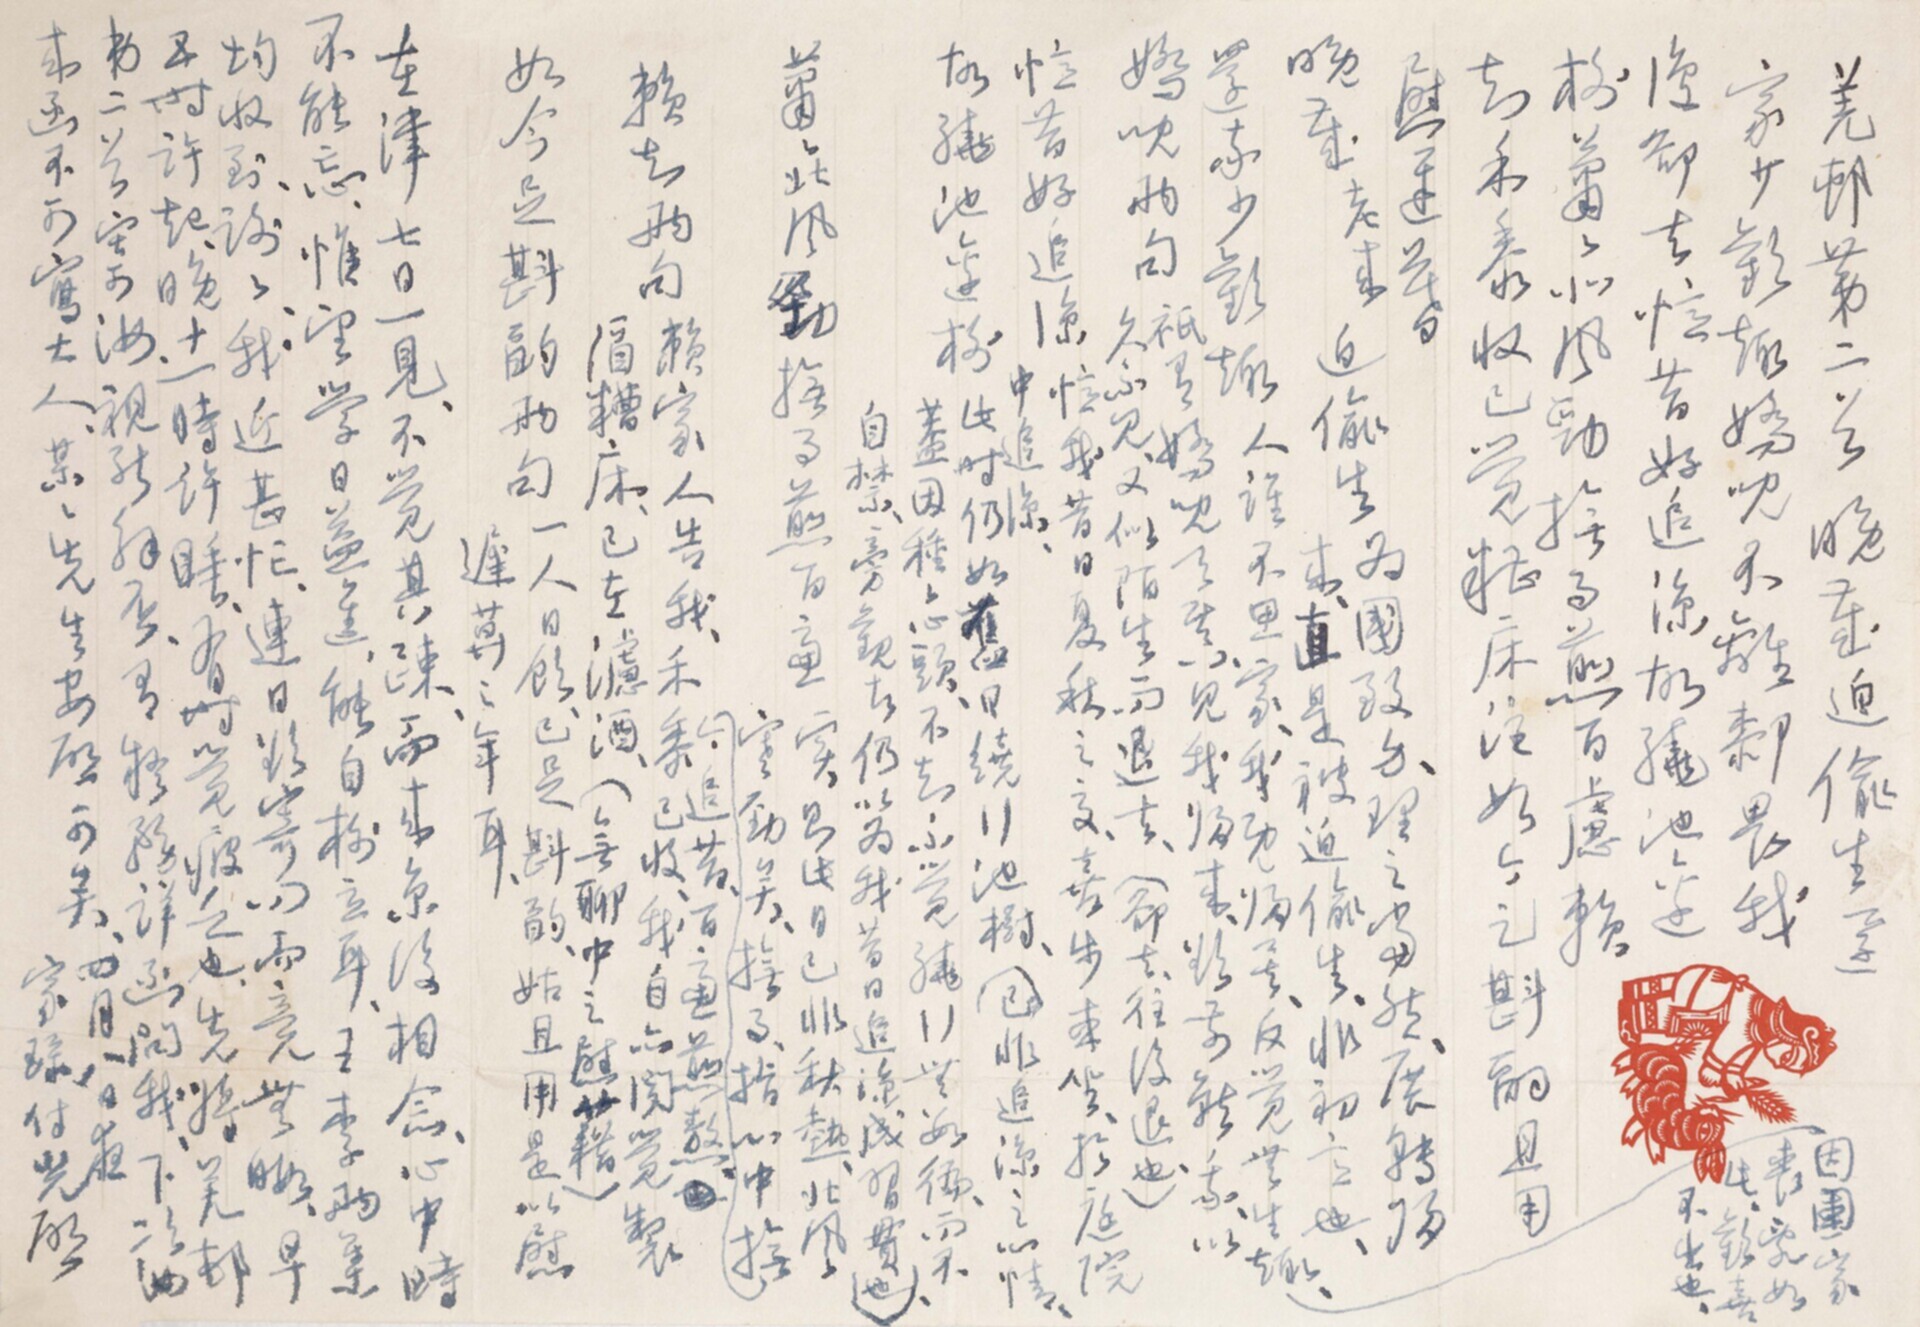 羌邨第二首 晚歲迫偷生 還
家少歡趣 嬌兒不離郄 畏我
復卻去 憶昔好追涼 故繞池邊
樹 蕭蕭北風勁 撫事煎百慮 賴
知禾黍收 已覺糟床注 如今足斟酌 且用
慰遲暮
晚歲 老來 迫偷生 為國致力、理之當然、展轉歸
來、直是被迫偷生、非初意也、
還家少歡趣 人誰不思家、我既歸矣、反覺無生趣、
因國家
喪亂如
此、歡喜
不出也、
嬌兒兩句 祇有嬌兒 見我歸來、
久不見、又似陌生而退去、（卻去、往後退也）
憶昔好追涼 憶我昔日夏秋之交、喜步來坐、於庭院
中追涼、
故繞池邊樹 此时仍如舊日繞行池樹、（已非追涼之心情、
蓋因種種心頭、不知不覺繞行
自禁、旁觀者仍以为我昔日追涼成習慣也）、
蕭北風勁 撫事煎百慮 實則此日已非秋熱、北風
寒勁矣、撫事、指心中撫
今追昔、百慮煎熬、
賴知兩句 賴家人告我、禾黍已收、我自亦聞覺製
酒糟床、已在濾酒、（無聊中之慰藉）
如今足斟酌兩句 一人日飲、已足斟酌、姑且用是以慰
遲暮之年耳、
在津七日一見、不覺其疎、而來京後相念、心中時
不能忘、惟望學日益進、能自樹立耳、王李兩葉
均收到、謝謝、我近甚忙、連日欲寄而竟無暇、早
五时許起、晚十一時許睡、有时覺疲乏也、先將羌邨
第二首寄与汝、視能解否、有疑務詳函問我、下次
來函不可寫大人、某某先生安啟可矣、四月一日夜
家琭付光啟